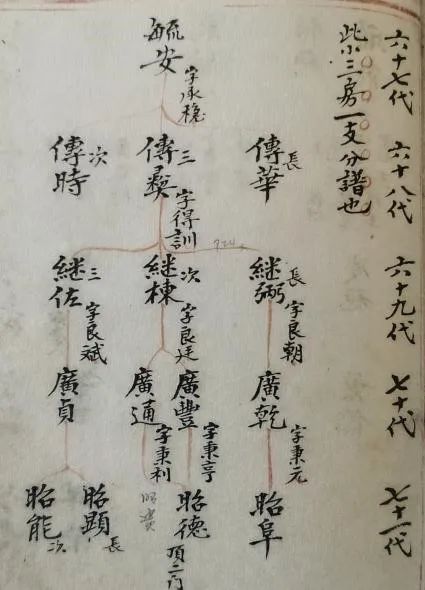 六十七代
六十八代
六十九代
七十代
七十一代
此小三房一支分譜也
毓安
字承穩
長
傳華
三
傳彝
字得訓
次
傳時
長
繼弼
字良朝
次
繼棟
字良廷
三
繼佐
字良斌
廣乾
字秉元
廣豐
字秉亨
廣通
字秉利
廣貞
昭阜
昭德
頂二門
昭顯
長
昭能
次